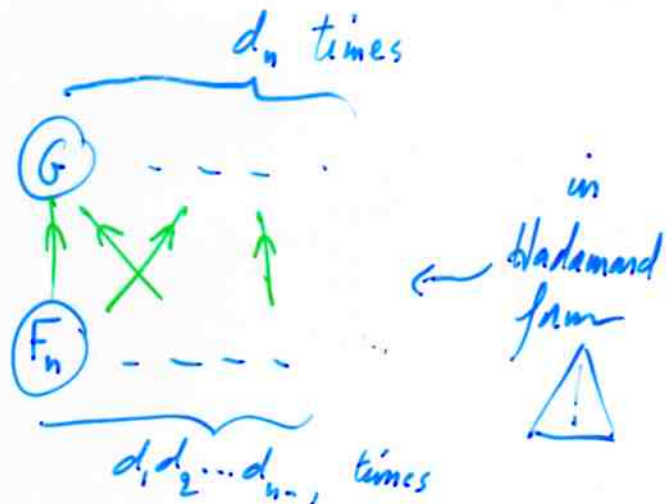 d_n times
G - - - .
in
Hadamard
form
!
F_n - - - -
d_1 d_2 ... d_{n-1} times